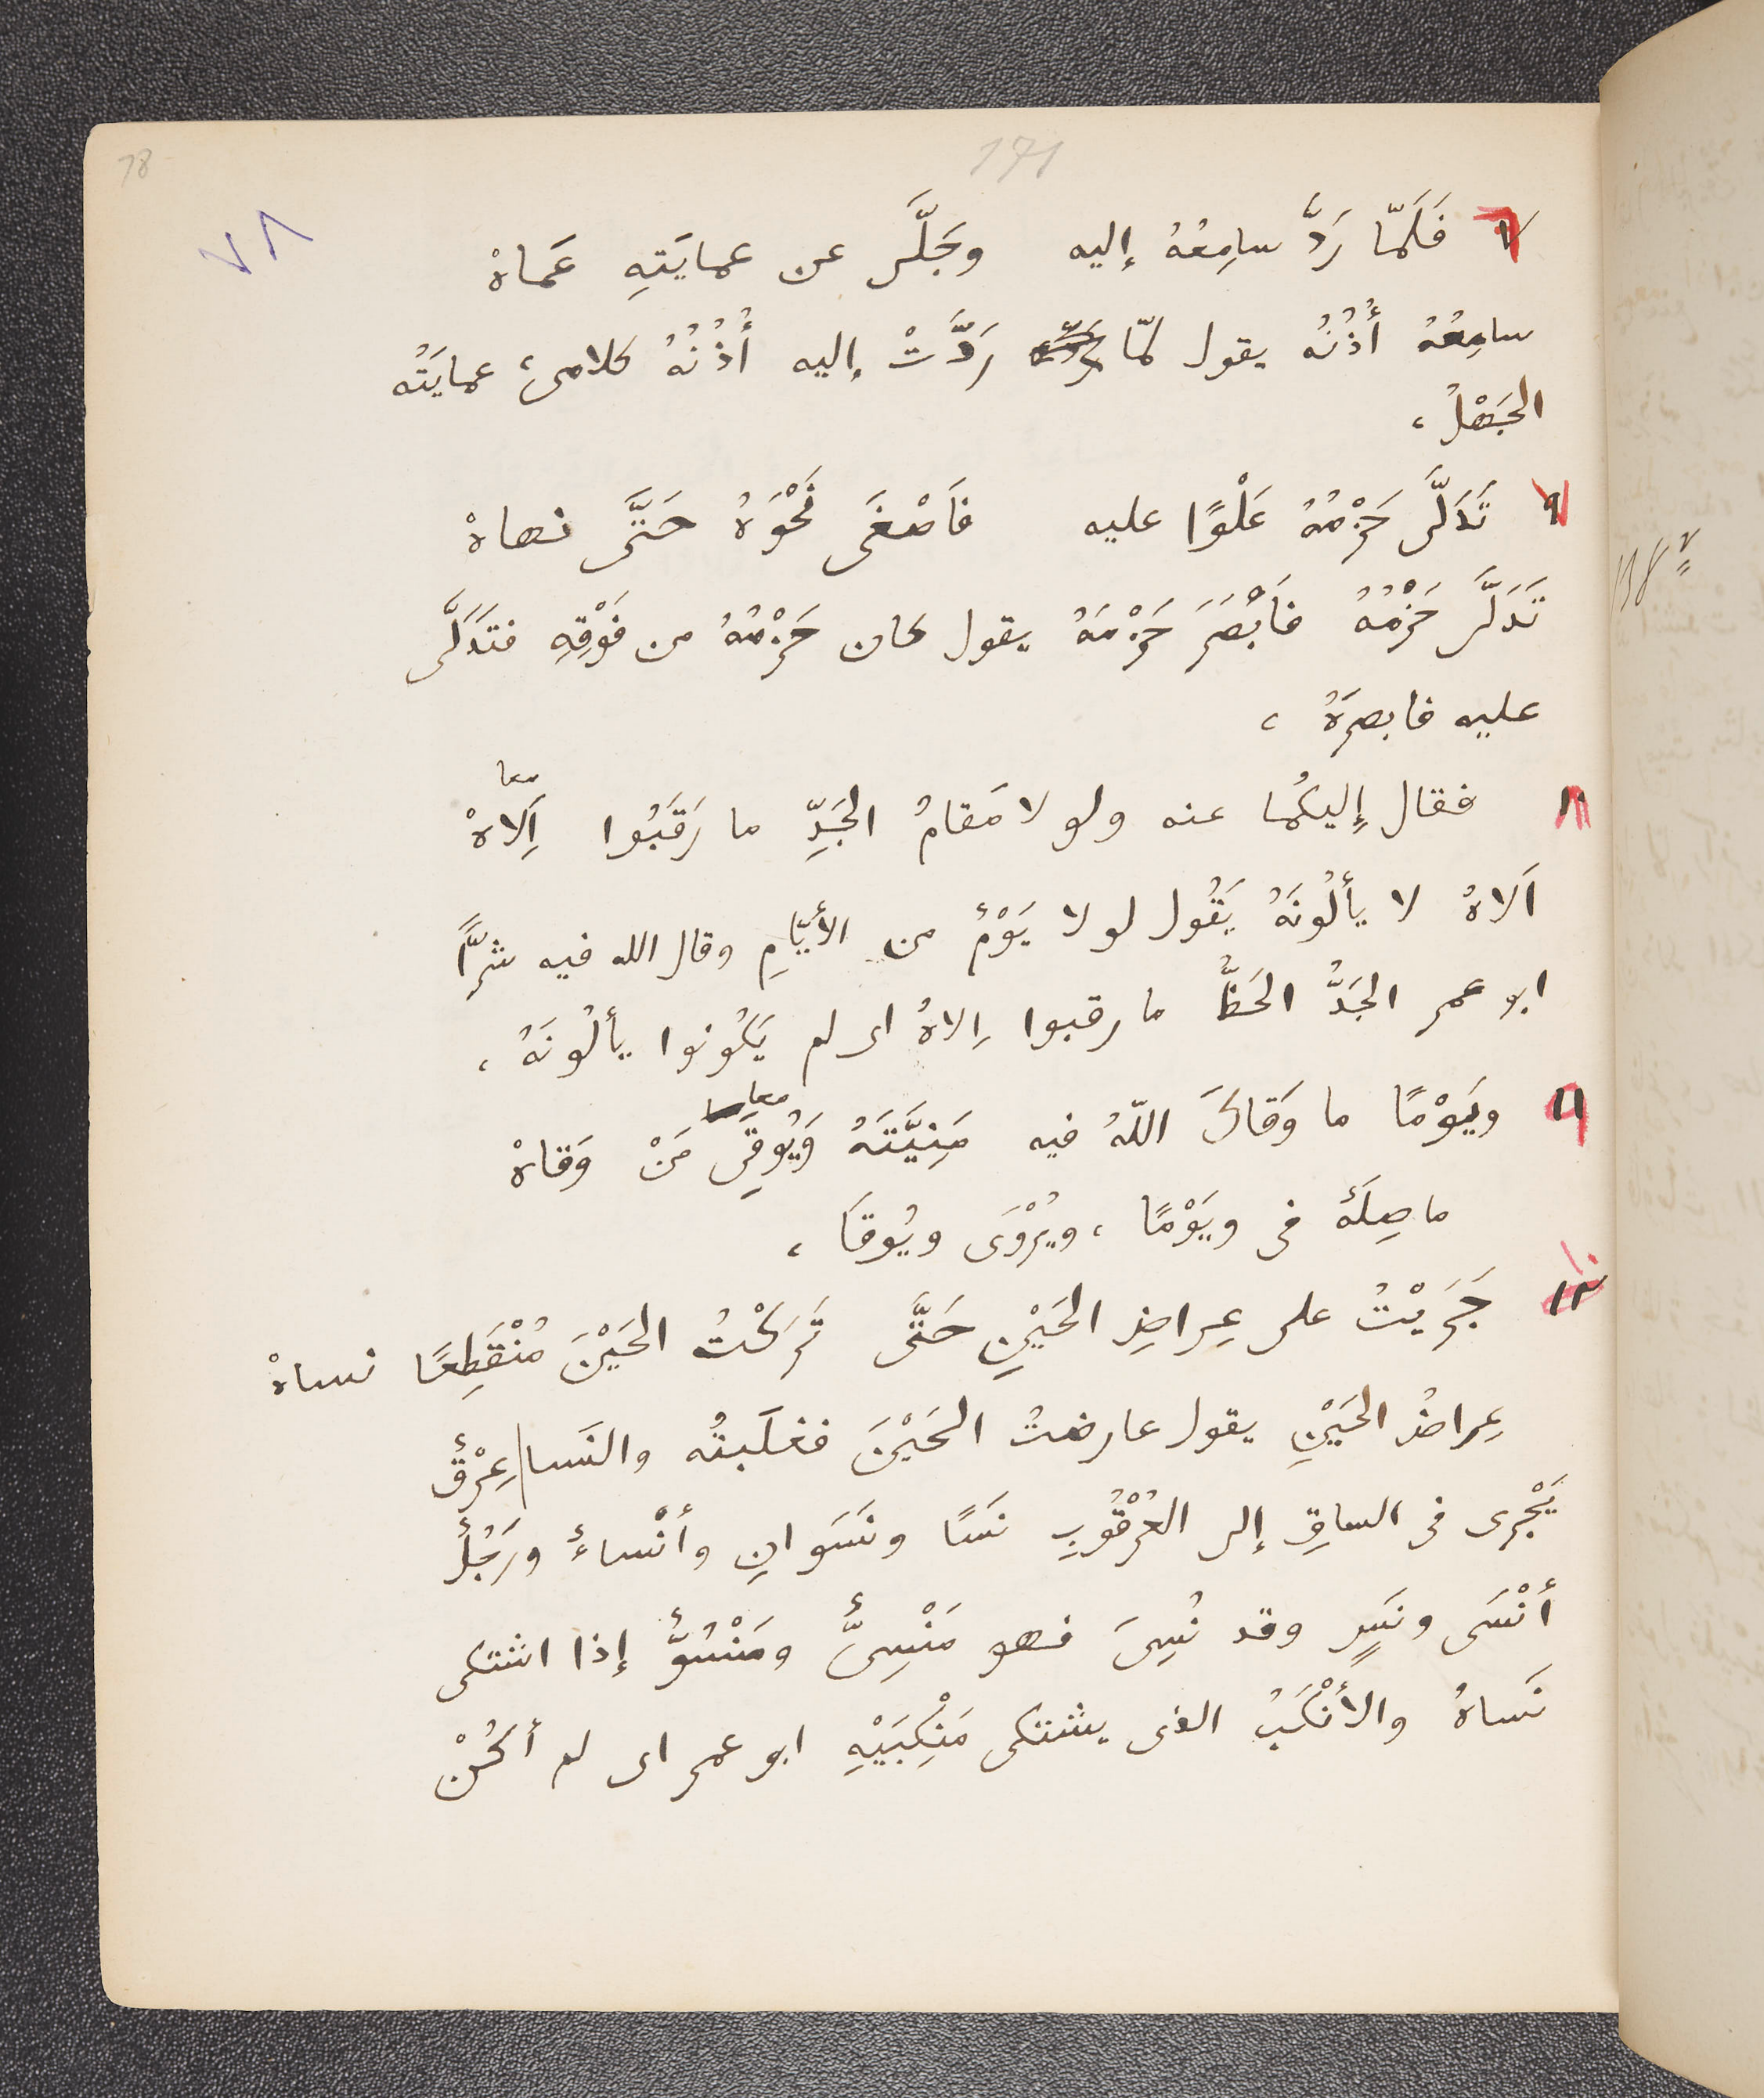 78
171
٧٨
٧ فَلَمّا رَدَّ سامِعُهُ إليه وجَلَّى عن عمايَتِهِ عَمَاهْ
سامِعُهُ أُذُنُه يقول لمّا رَدَّتْ إليه أُذُنُهُ كلامى، عمايَتُه
الجَهْلُ،
٩ تَدَلَّى حَزْمُهُ عَلْوًا عليه فَأَصْغَى نَحْوَهُ حَتَّى نهاهْ
تَدَلَّى حَزْمُهُ فأَبْصَرَ حَزْمَهُ يقول كان حَزْمُهُ من فَوْقِهِ فتَدَلَّى
عليه فابصرَهُ،
معا
١٠ فقال إِليكُما عنه ولولا مَقامُ الجَدِّ ما رَقَبُوا اَلِاهْ
اَلاهُ لا يألُونَهُ يَقُول لولا يَوْمٌ من الأيّامِ وقال الله فيه شرًّا
ابو عمر الجَدُّ الحَظُّ ما رقبوا اِلاهُ اى لم يَكُونوا يألُونَهُ،
معا
١١ ويَوْمًا ما وَقاكَ اللّهُ فيه مَنِيَّتَهُ وَيُوقِى مَنْ وَقاهْ
ما صِلَةٌ فى ويَوْمًا، ويُرْوَى ويُوقَا،
١٠
١٢ جَرَيْتُ على عِراضِ الحَيْنِ حَتَّى تَرَكْتُ الحَيْنَ مُنْقَطِعًا نساهْ
عِراضُ الحَيْنِ يقول عارضتُ الحَيْنَ فغلَبتُه والنَسا عِرْقٌ
يَجْرى فى الساقِ إلى العُرْقُوبِ نَسًا ونَسَوانِ وأنْساءٌ ورَجُلٌ
أنْسَى ونَسٍ وقد نُسِىَ فهو مَنْسِىٌّ ومَنْسُوٌّ إذا اشتكى
نَساهُ والأنْكَبُ الذى يشتكى مَنْكِبَيْهِ ابو عمر اى لم أكُنْ